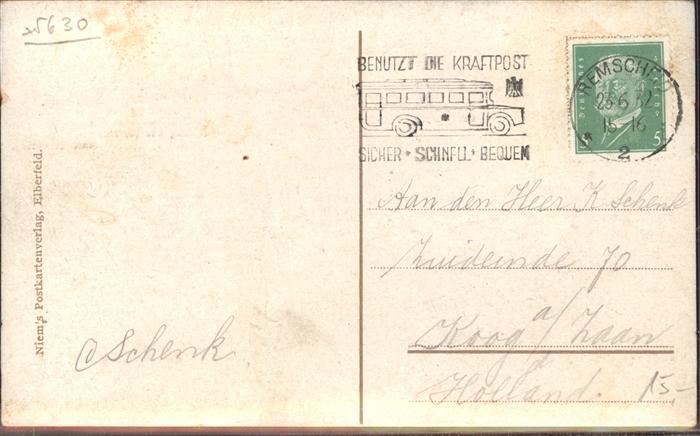 25630
BENUTZT DIE KRAFTPOST
SICHER * SCHNELL * BEQUEM
REMSCHEID
23.6.32
15-16
* 2
Deutsches
5
Niem's Postkartenverlag, Elberfeld.
Aan den Heer K Schenk
Zuideinde 70
Koog a/Zaan
Holland.
15,-
C Schenk